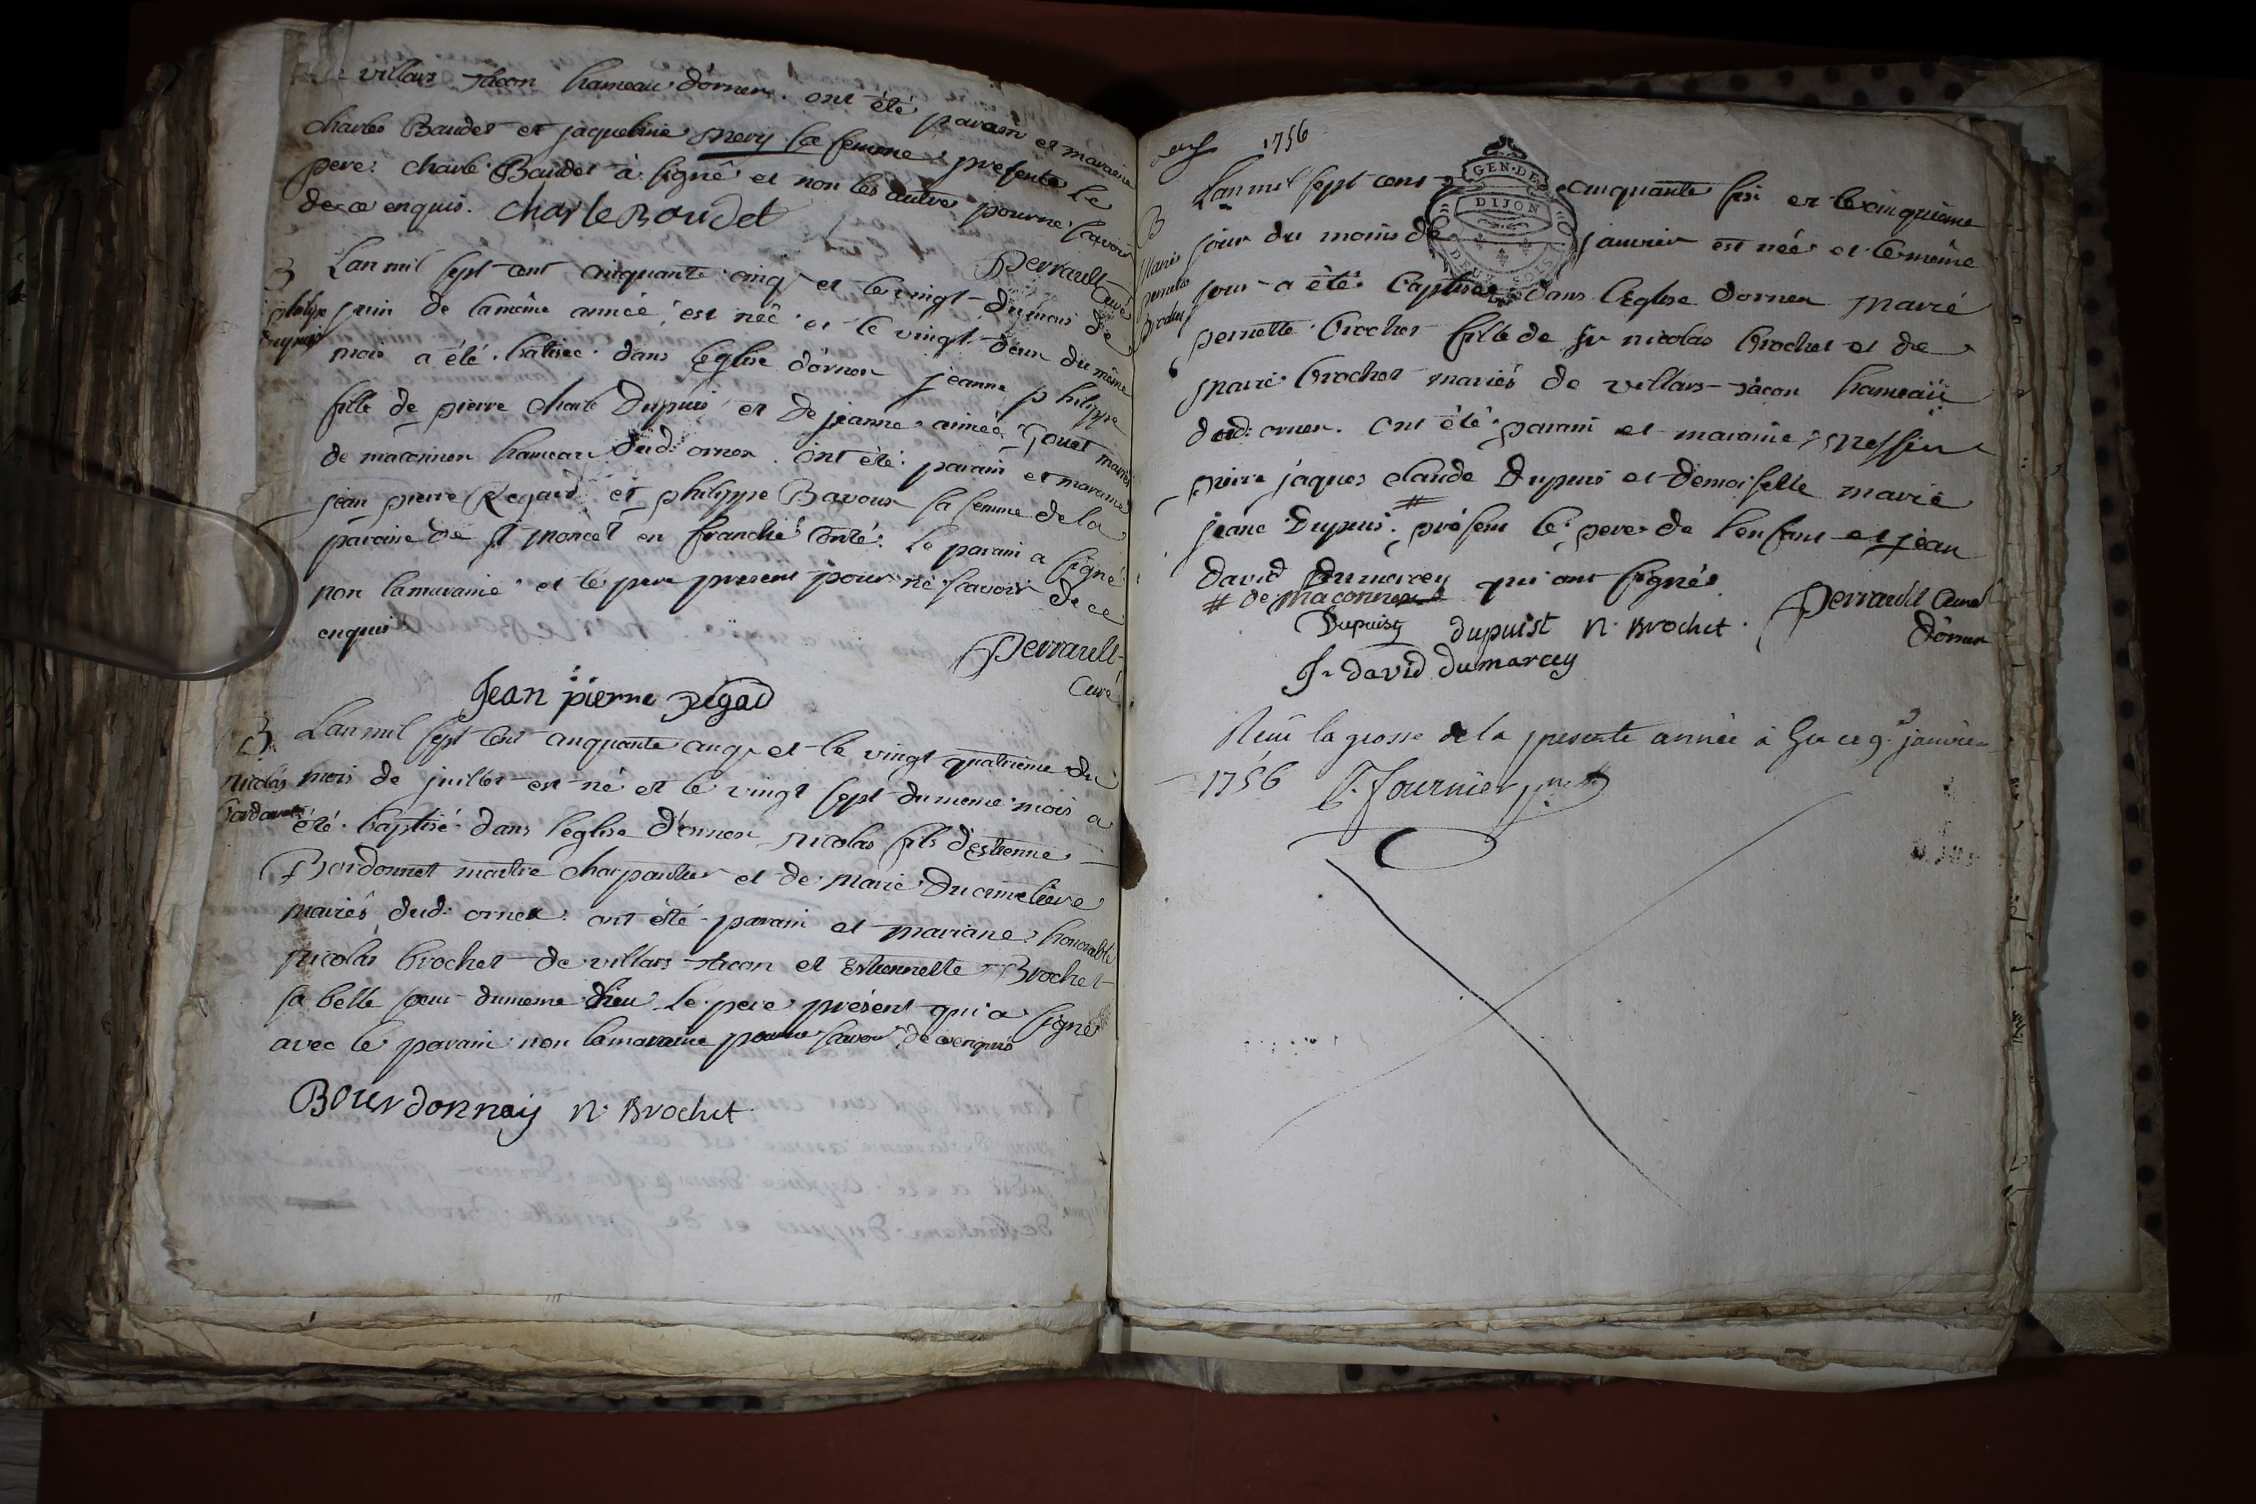 villars tacon hameau d'ornex. ont été parain et maraine
charles Baudet et jaqueline mery sa femme presents Le
pere. charle Baudet à signé et non les autres pour ne savoir
de ce enquis. charle Baudet
Perrault Curé
B
philippe
Dupuis
Lan mil sept cent cinquante cinq et le vingt du mois de
juin de la même année, est née et le vingt deux du même
mois a été batisée dans l'Eglise d'ornex jeanne philippe
fille de pierre charle Dupuis et de jeanne aimée Gouet mariés
de maconnex hameau dud. ornex. ont été parain et maraine
jean pierre Regard et philippe Bavoux sa femme de la
paroise de St moncel en franche Comté. le parain a signé
non la maraine et le pere present pour ne savoir de ce
enquis
Perrault
Curé
Jean pierre Regad
B
nicolas
Lan mil sept Cent cinquante cinq et le vingt quatrieme du
mois de juillet est né et le vingt sept du meme mois a
été baptisé dans l'eglise d'ornex nicolas fils d'estienne
Bordonnet maitre charpantier et de marie Ducimetière
mariés dud. ornex. ont été parain et maraine honorable
nicolas brochet de villars tacon et Estiennette Brochet
sa belle soeur du meme lieu le pere présent qui a signé
avec le parain non la maraine pour ne savoir de ce enquis
Bourdonnay n. Brochet
1756
B
Marie
pernette
Brochet
Lan mil sept cent cinquante six et le cinquième
GEN. DE
DIJON
DEUX SOLS
jour du mois de janvier est née et le même
jour a été baptisée dans l'Eglise d'ornex marie
pernette brochet fille de Sr nicolas brochet et de
marie brochet mariés de villars tacon hameau
dud. ornex. ont été parain et maraine messire
pierre jaques claude Dupuis et demoiselle marie
jeane Dupuis # présent le pere de l'enfant et jean
David Dumarcey qui ont signés.
# de maconnex
Perrault Curé
d'ornex
Dupuist dupuist N. Brochet.
J. david dumarcey
Reçu la grosse de la presente année à Gex ce 9e janvier
1756 Fournier